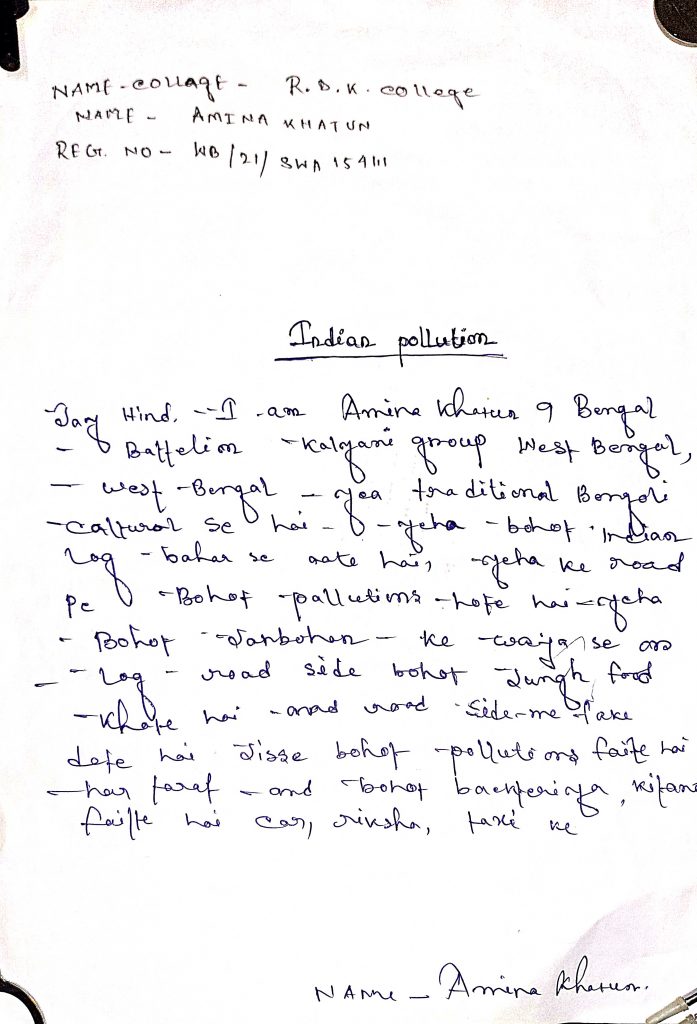 NAME - COLLAGE - R.D.K. COLLEGE
NAME - AMINA KHATUN
REGT. NO - WB/21/SWA 154111
Indian pollution
Jay Hind. - I am Amina Khatun 9 Bengal
- Battelion - Kalyani group West Bengal,
- West-Bengal - yea traditional Bengoli
- caltural se hai - yeha - bohot Indian
log - bahar se aate hai, yeha ke road
pe - Bohot - pallutions - hote hai - yeha
- Bohot - Janbohon - ke - waiya se or
- log - road side bohot Jungh food
- khate hai - and road side-me fake
dete hai Jisse bohot - pollutions failte hai
- har taraf - and bohot backteriya, kitanu
failte hai car, riksha, taxi ke
NAME - Amina Khatun.